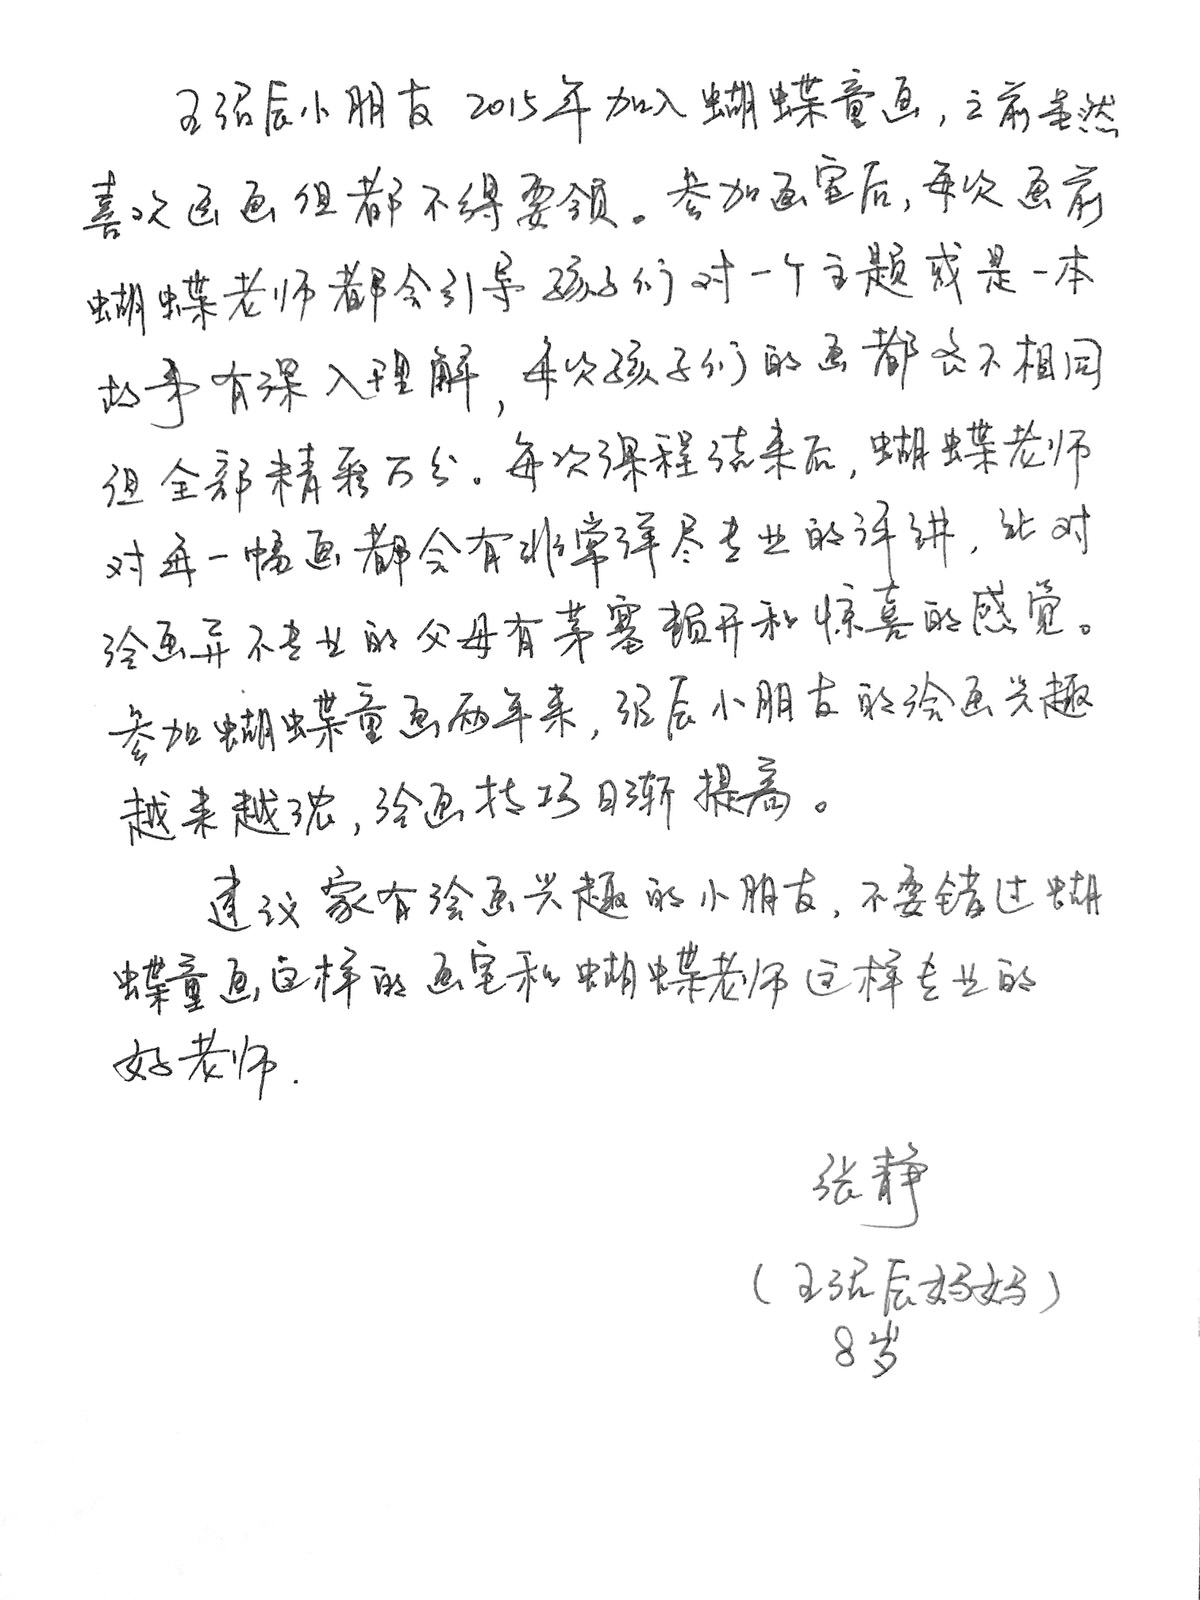 王珺辰小朋友 2015年加入蝴蝶童画，之前虽然
喜欢画画但都不得要领。参加画室后，每次画前
蝴蝶老师都会引导孩子们对一个主题或是一本
故事有深入理解，每次孩子们的画都各不相同
但全部精彩万分。每次课程结束后，蝴蝶老师
对每一幅画都会有非常详尽专业的评讲，让对
绘画并不专业的父母有茅塞顿开和惊喜的感觉。
参加蝴蝶童画两年来，珺辰小朋友的绘画兴趣
越来越浓，绘画技巧日渐提高。
建议家有绘画兴趣的小朋友，不要错过蝴
蝶童画这样的画室和蝴蝶老师这样专业的
好老师.
张静
（王珺辰妈妈）
8岁